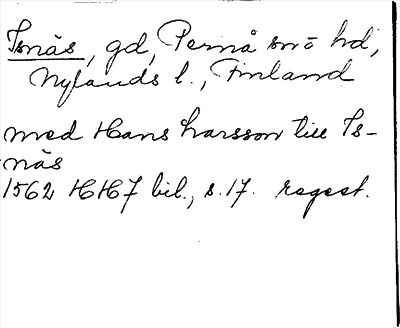 Isnäs, gd, Pernå sn o hd,
Nylands l., Finland
med Hans Larsson till Is-
näs
1562 HH7 bil., s.17. regest.